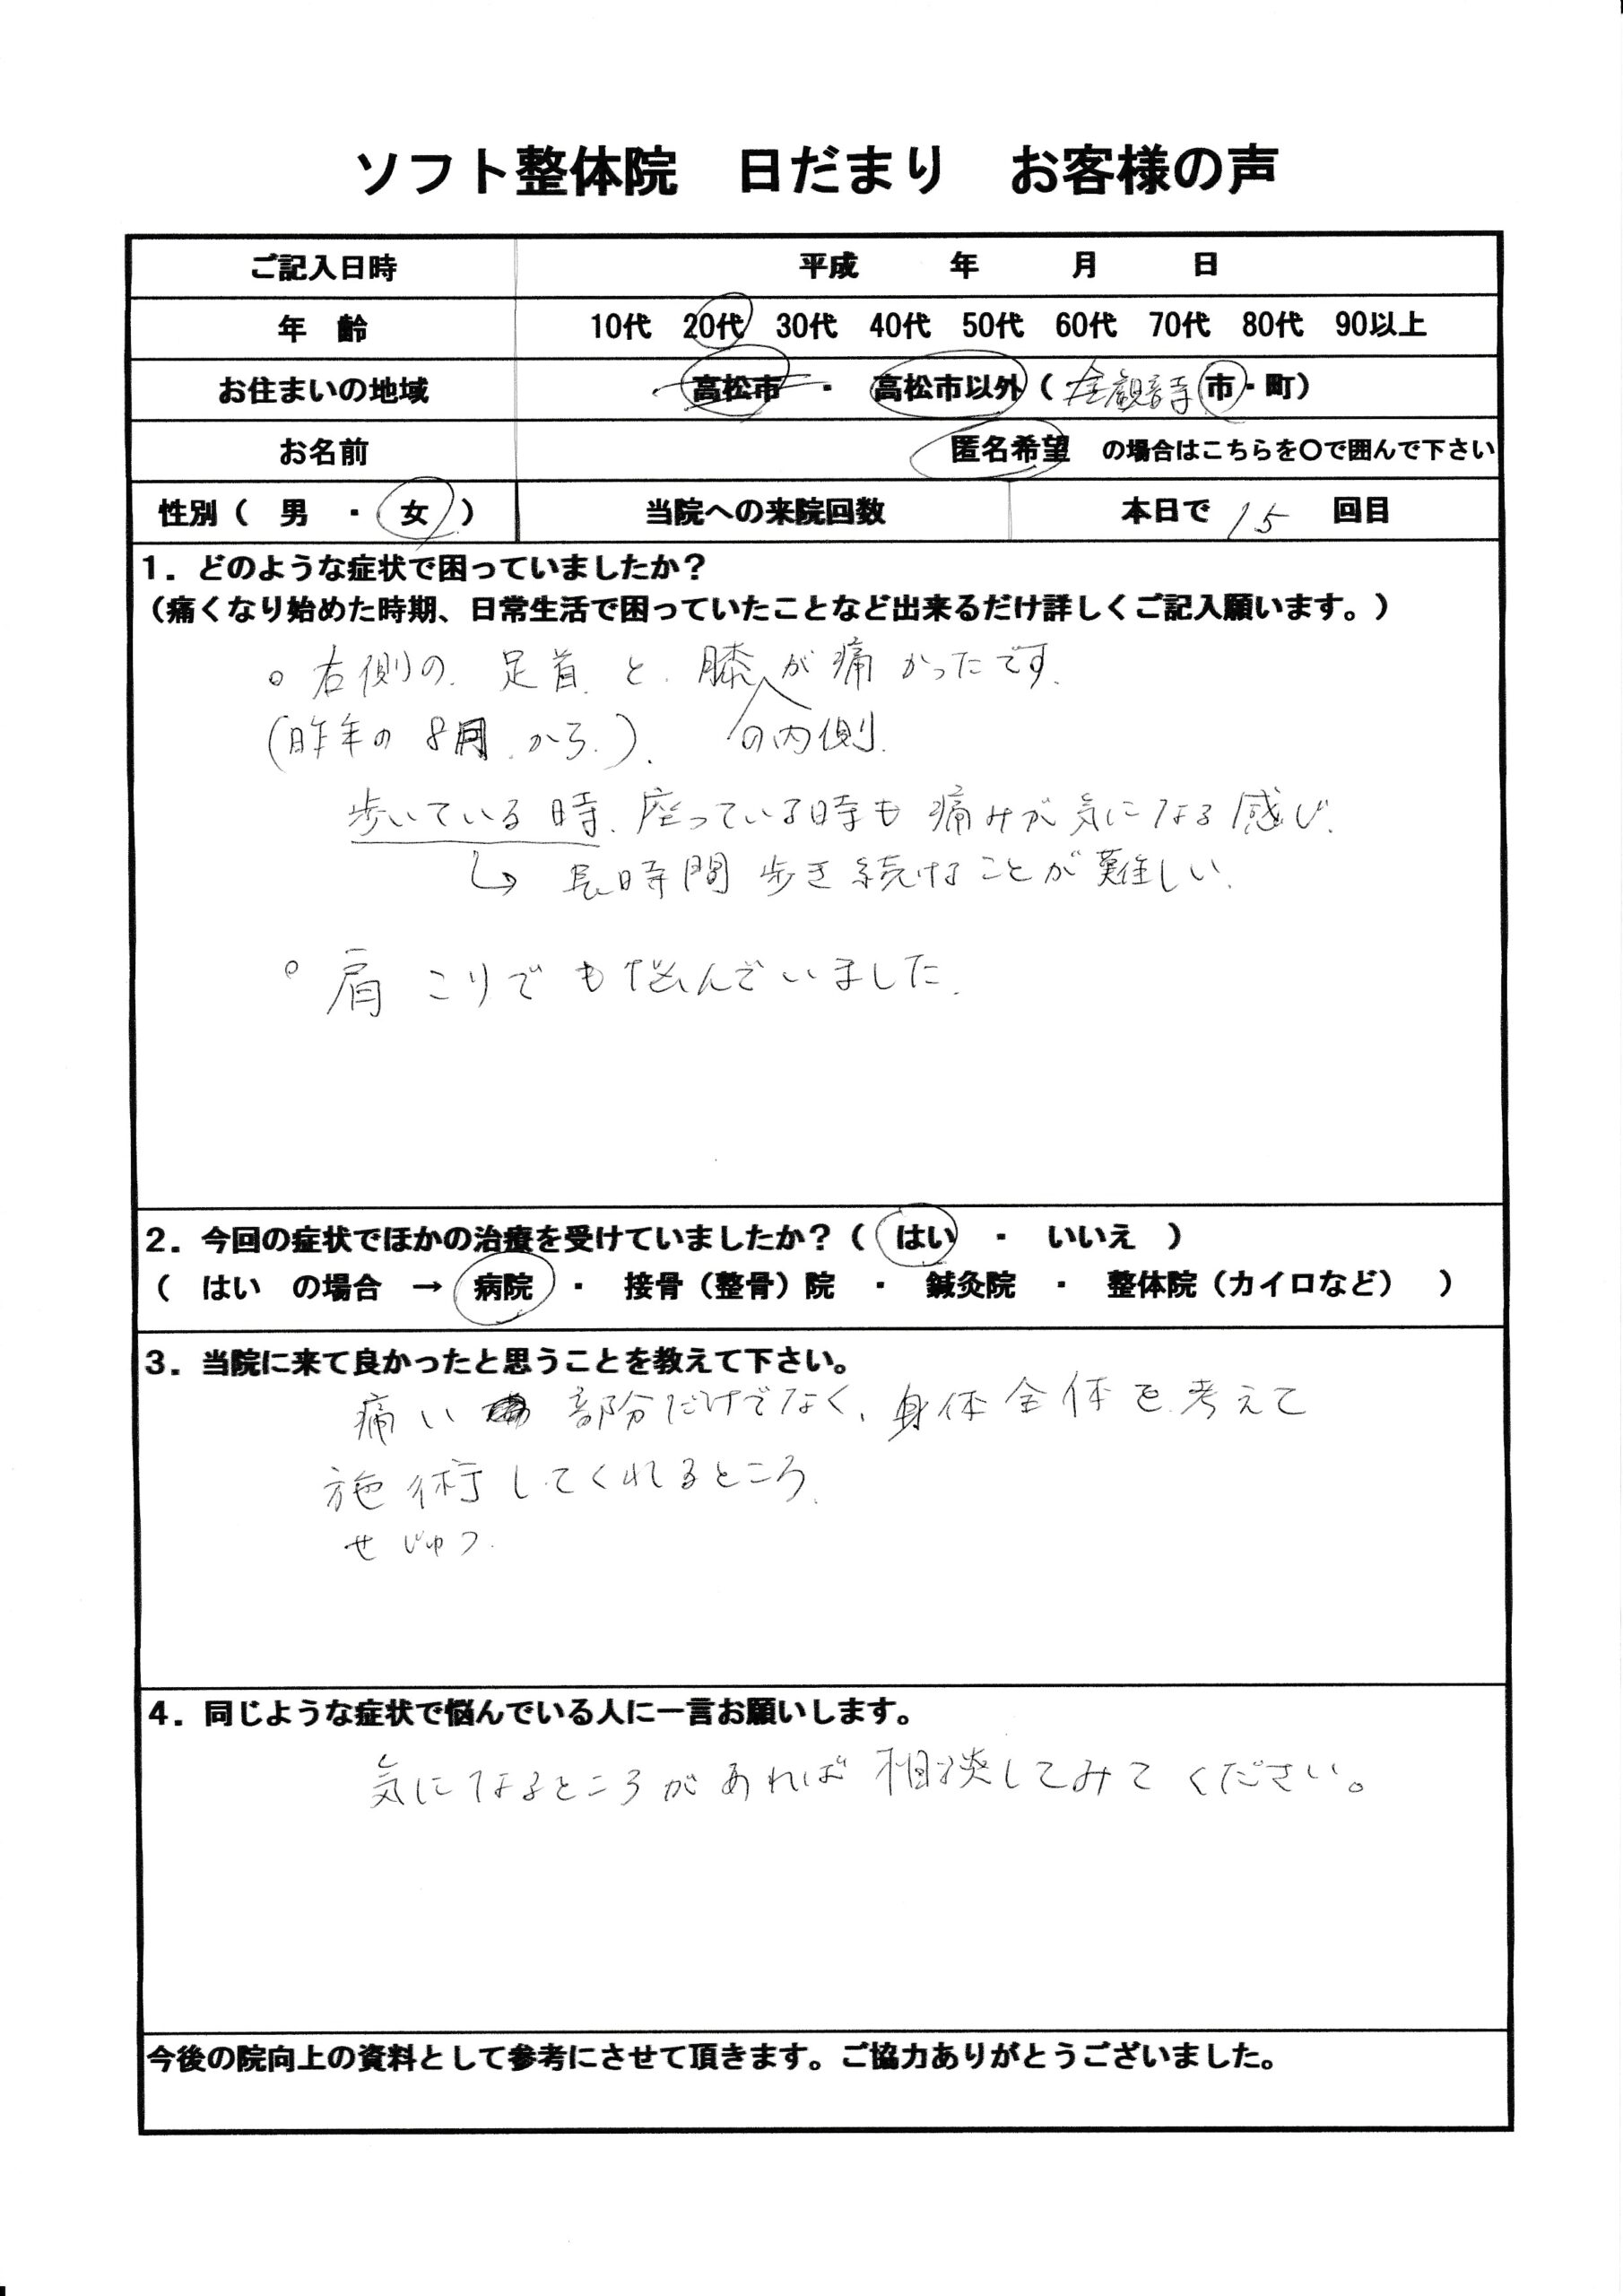 ソフト整体院 日だまり お客様の声
ご記入日時 平成 年 月 日
年 齢 10代 20代 30代 40代 50代 60代 70代 80代 90以上
お住まいの地域 高松市 ・ 高松市以外 ( 観音寺 市・町)
お名前 匿名希望 の場合はこちらを〇で囲んで下さい
性別 ( 男 ・ 女 ) 当院への来院回数 本日で 15 回目
1. どのような症状で困っていましたか?
(痛くなり始めた時期、日常生活で困っていたことなど出来るだけ詳しくご記入願います。)
○ 右側の 足首 と 膝が痛かったです.
(昨年の 8月 から.). の内側.
歩いている時、座っている時も 痛みが気になる感じ.
↳ 長時間 歩き続けることが難しい.
○ 肩こりでも悩んでいました.
2. 今回の症状でほかの治療を受けていましたか? ( はい ・ いいえ )
( はい の場合 → 病院 ・ 接骨(整骨)院 ・ 鍼灸院 ・ 整体院(カイロなど) )
3. 当院に来て良かったと思うことを教えて下さい。
痛い 部分だけでなく、身体全体を考えて
施術してくれるところ.
せじゅつ.
4. 同じような症状で悩んでいる人に一言お願いします。
気になるところがあれば相談してみてください。
今後の院向上の資料として参考にさせて頂きます。ご協力ありがとうございました。